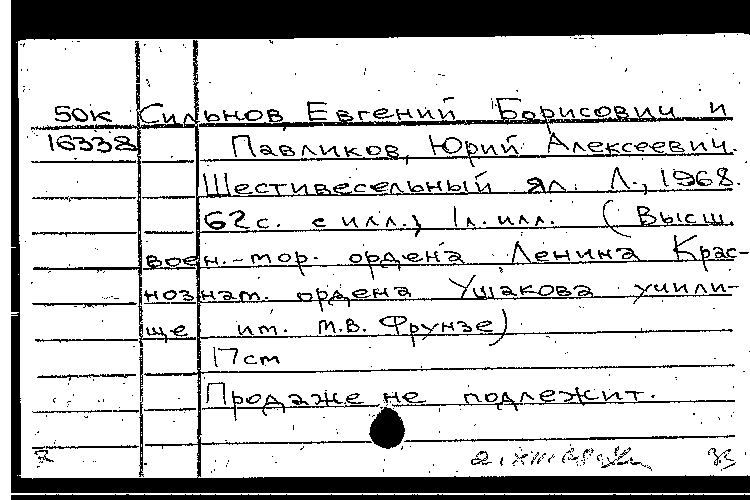 50К Сильнов, Евгений Борисович и
16338 Павликов, Юрий Алексеевич.
Шестивесельный ял. Л., 1968.
62 с. с илл.; 1 л. илл. (Высш.
воен.-мор. ордена Ленина Крас-
нознам. ордена Ушакова учили-
ще им. М.В. Фрунзе)
17 см
Продаже не подлежит.